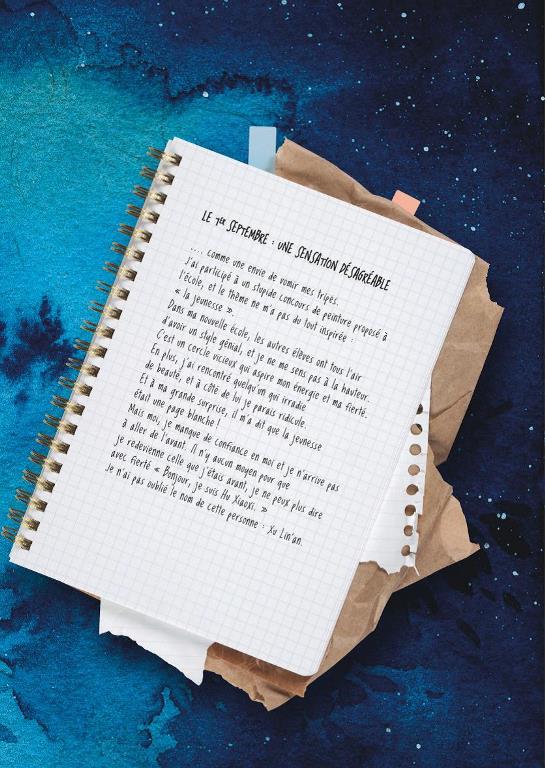 LE 1ER SEPTEMBRE : UNE SENSATION DÉSAGRÉABLE
.... comme une envie de vomir mes tripes.
J'ai participé à un stupide concours de peinture proposé à
l'école, et le thème ne m'a pas du tout inspirée :
« la jeunesse ».
Dans ma nouvelle école, les autres élèves ont tous l'air
d'avoir un style génial, et je ne me sens pas à la hauteur.
C'est un cercle vicieux qui aspire mon énergie et ma fierté.
En plus, j'ai rencontré quelqu'un qui irradie
de beauté, et à côté de lui je parais ridicule.
Et à ma grande surprise, il m'a dit que la jeunesse
était une page blanche !
Mais moi, je manque de confiance en moi et je n'arrive pas
à aller de l'avant. Il n'y aucun moyen pour que
je redevienne celle que j'étais avant, je ne peux plus dire
avec fierté « Bonjour, je suis Hu Xiaoxi. »
Je n'ai pas oublié le nom de cette personne : Xu Lin'an.